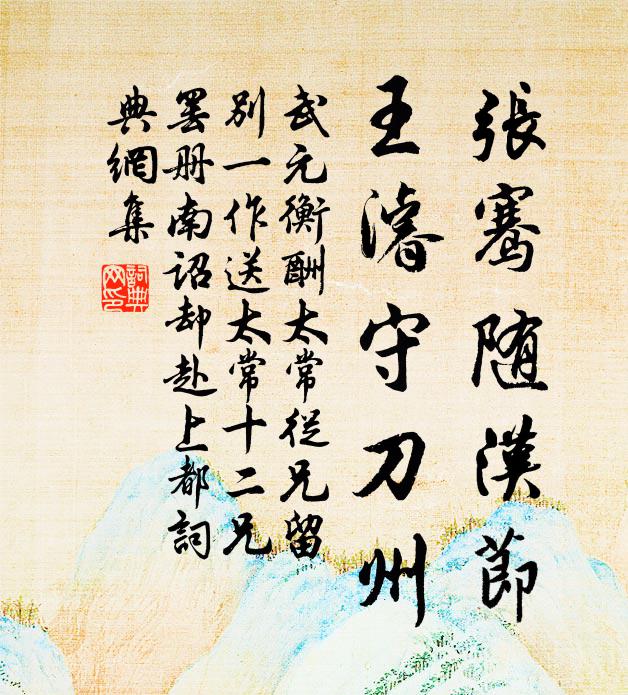 張騫随漢節
王濬守刀州
武元衡酬太常從兄留
別一作送太常十二兄
罢册南诏却赴上都詞
典網集
詞典网印